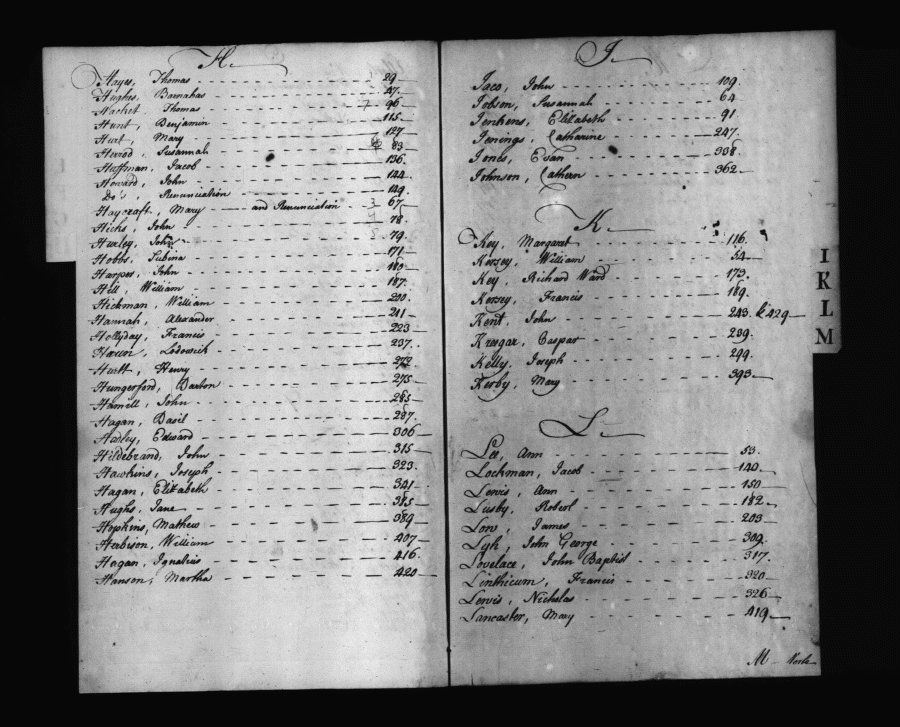 H.
Hayes, Thomas 29.
Hughs, Barnabas 47.
Hachet, Thomas 96
Hunt, Benjamin 115.
Hurt, Mary 127
Herod, Susannah 83
Huffman, Jacob 136.
Howard, John 144
Do's, Renunciation 149.
Haycraft, Mary and Renunciation 67
Hicks, John 78.
Hurley, John 79.
Hobbs, Sabina 171
Harper, John 183
Hill, William 187.
Hickman, William 200.
Hannah, Alexander 211
Hollyday, Francis 223
Lodowick 237.
Hurtt, Henry 272
Hungerford, Barton 275
Harnell, John 285
Hagan, Basil 287.
Hadley, Edward 306
Hildebrand, John 315
Hawkins, Joseph 323
Hagan, Elizabeth 341
Hughs, Jane 385
Hopkins, Mathew 389
Herbison, William 407
Hagan, Ignatius 416.
Hanson, Martha 420
I.
Jaco, John 109.
Jobson, Susannah 64
Jenkens, Elizabeth 91
Jenings, Catharine 247.
Jones, Evan 338.
Johnson, Cathern 362.
K.
Key, Margaret 116.
Kersey, William 54
Key, Richard Ward 173.
Kersey, Francis 189.
Kent, John 243. & 429
Kreagar, Caspar 239.
Kelly, Joseph 299.
Kerby, Mary 393.
L.
Lee, Ann 53.
Lockman, Jacob 140.
Lewis, Ann 150
Lusby, Robert 182
Low, James 203
Lyh, John George 309.
Lovelace, John Baptist 317.
Linthicum, Francis 320
Lewis, Nicholas 326
Lancaster, Mary 419
M
I
K
L
M